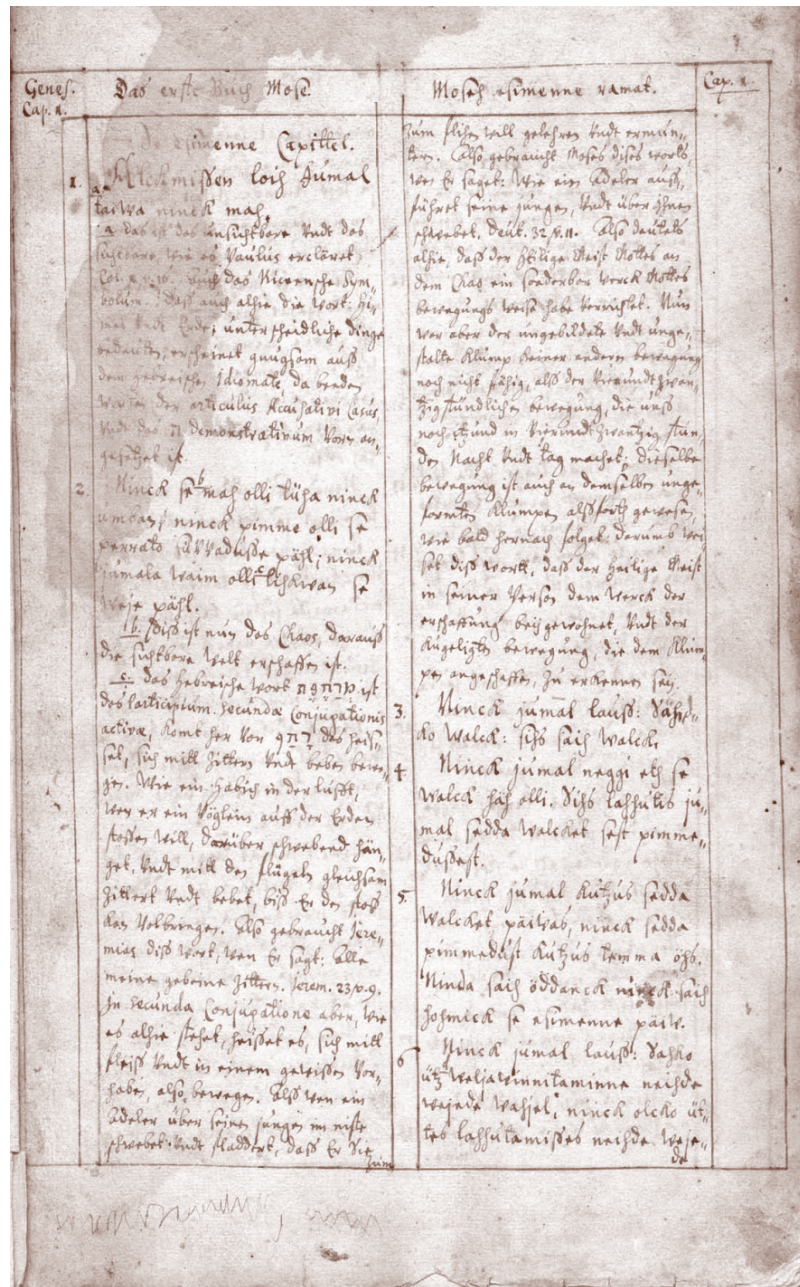 Genes.
Cap. 1.
Das erste Buch Mose
Moseh esimenne ramat.
Cap. 1.
esimenne Capittel.
1.
Alckmissen loih Jumal
taiwa ninck mah.
a Das ist das unsichtbare undt das
sichtbare, wie es Paulus erclåret
Col. 1. v. 16. das Niceensche Sym-
bolum. Dass auch alhie die wort: Hi-
mel undt Erde, unterscheidliche dinge
bedeuten, erscheinet gnugsam auss
dem Hebreischen Idiomate, da beeden
worten der articulus Accusativi Casus,
undt das ה demonstrativum vorn an-
gesetzet ist.
2.
Ninck se b mah olli tüha ninck
ninck pimme olli se
pähl; ninck
jumala waim olli c se
weje pähl.
b. Diss ist nun das Chaos, darauss
die sichtbare welt erschaffen ist.
c. das Hebreische wort מרחפת ist
das Participium secundæ Conjugationis
activæ, komt her von רחף das heis-
set, sich mitt zittern undt beben bewe-
gen. Wie ein Habich in der lufft,
wen er ein Vöglein auff der Erden
stossen will, darüber schwebend hän-
get, undt mitt den flügeln gleichsam
zittert undt bebet, biss Er den stoss
kan volbringen. Also gebraucht Jere-
mias diss wort, wen Er sagt: Alle
meine gebeine zittern. Jerem. 23. v. 9.
In secunda Conjugatione aber, wie
es alhie stehet, heisset es, sich mitt
fleiss undt in einem gewissen vor-
haben, also bewegen. Alss wen ein
Adeler über seinen jungen im niste
schwebet undt fladdert, dass Er Sie
zum
zum flihen will gelehren undt ermun-
tern. Also gebraucht Moses dises wort,
wen Er saget: Wie ein Adeler auss-
führet seine jungen, undt über ihnen
schwebet, Deut. 32. v. 11. Also deutets
alhie, dass der Heilige Geist Gottes an
dem Chao ein sonderbar werck Gottes
bewegungs weise habe verrichtet. Nun
war aber der ungebildete undt unge-
stalte Klump keiner anderen bewegung
noch nicht fähig, alss der vierundtzwan-
tzigstündlichen bewegung, die uns
noch itzund in vierundtzwantzig stun-
den Nacht undt tag machet; dieselbe
bewegung ist auch an demselben unge-
formten Klumpen alssforth gewesen,
wie bald hernach folget: darumb wei-
set diss wortt, dass der Heilige Geist
in seiner Person dem werck der
erschaffung beÿgewohnet, undt der
kugeligten bewegung, die dem Klum-
pen angeschaffen, zu erkennen seÿ.
3.
Ninck jumal lauss: Sahd-
ko walck: sihs saih walck.
4
Ninck jumal neggi eth se
walck häh olli. Sihs lahhutis ju-
mal sedda walcket sest pimme-
dussest.
5.
Ninck jumal kutzus sedda
walcket päiwas, ninck sedda
pimmedust kutzus temma öhs.
Ninda saih öddanck ninck saih
hohmick se esimenne päiw.
6
Ninck jumal lauss: Sahko
ütz weljawinnitaminne neihde
wejede wahjel, ninck olcko üt-
tes lahhutamisses neihde weje-
de